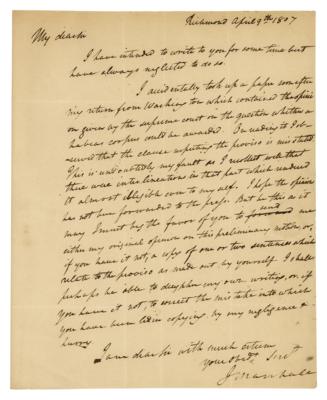 Richmond April 9th 1807
My dear Sir
I have intended to write to you for some time but
have always neglected to do so.
I accidentally took up a paper soon after
my return from Washington which contained the opini
on given by the supreme court on the question whether a
habeas corpus could be awarded. In reading it I ob-
served that the clause respecting the proviso is misstated
This is undoubtedly my fault as I recollect well that
there were interlineations in that part which rendered
it almost illegible even to my self. I hope the opinion
has not been forwarded to the press. But be this as it
may I must beg the favor of you to forward send me
either my original opinion on this preliminary motion, or,
if you have it not, a copy of one or two sentences which
relate to the proviso as made out by yourself. I shall
perhaps be able to decypher my own writing, or, if
you have it not, to correct the mistake into which
you have been led in copying by my negligence &
hurry
I am dear Sir with much esteem
your Obedt. Servt
J Marshall